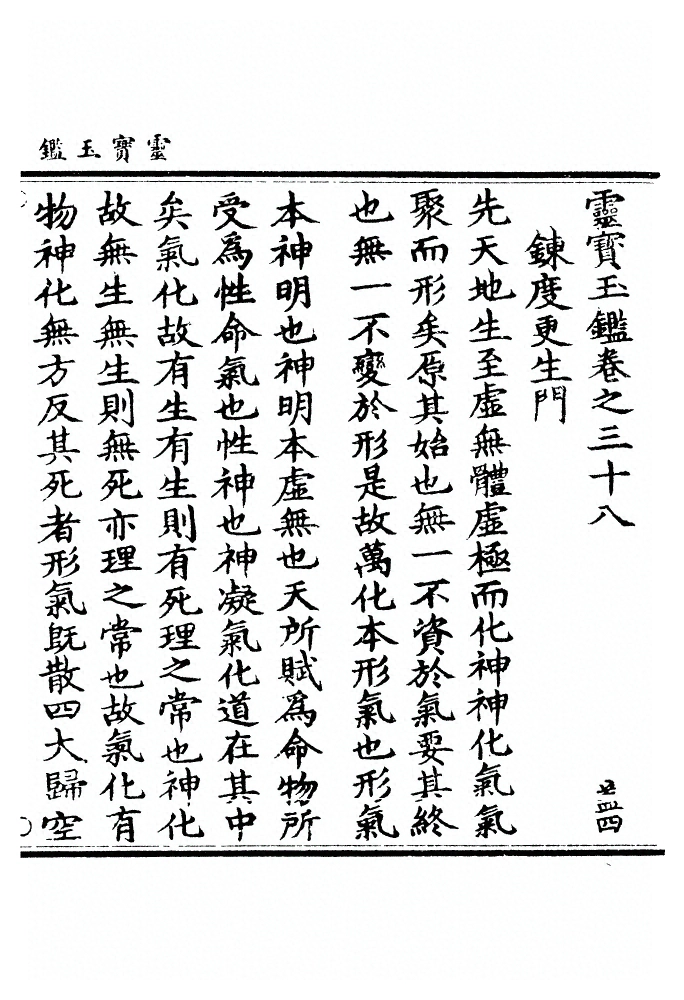 靈寳玉鑑
靈寳玉鑑卷之三十八
鍊度更生門
先天地生至虛無體虛極而化神神化氣氣
聚而形矣原其始也無一不資於氣要其終
也無一不變於形是故萬化本形氣也形氣
本神明也神明本虛無也天所賦爲命物所
受爲性命氣也性神也神凝氣化道在其中
矣氣化故有生有生則有死理之常也神化
故無生無生則無死亦理之常也故氣化有
物神化無方反其死者形氣旣散四大歸空